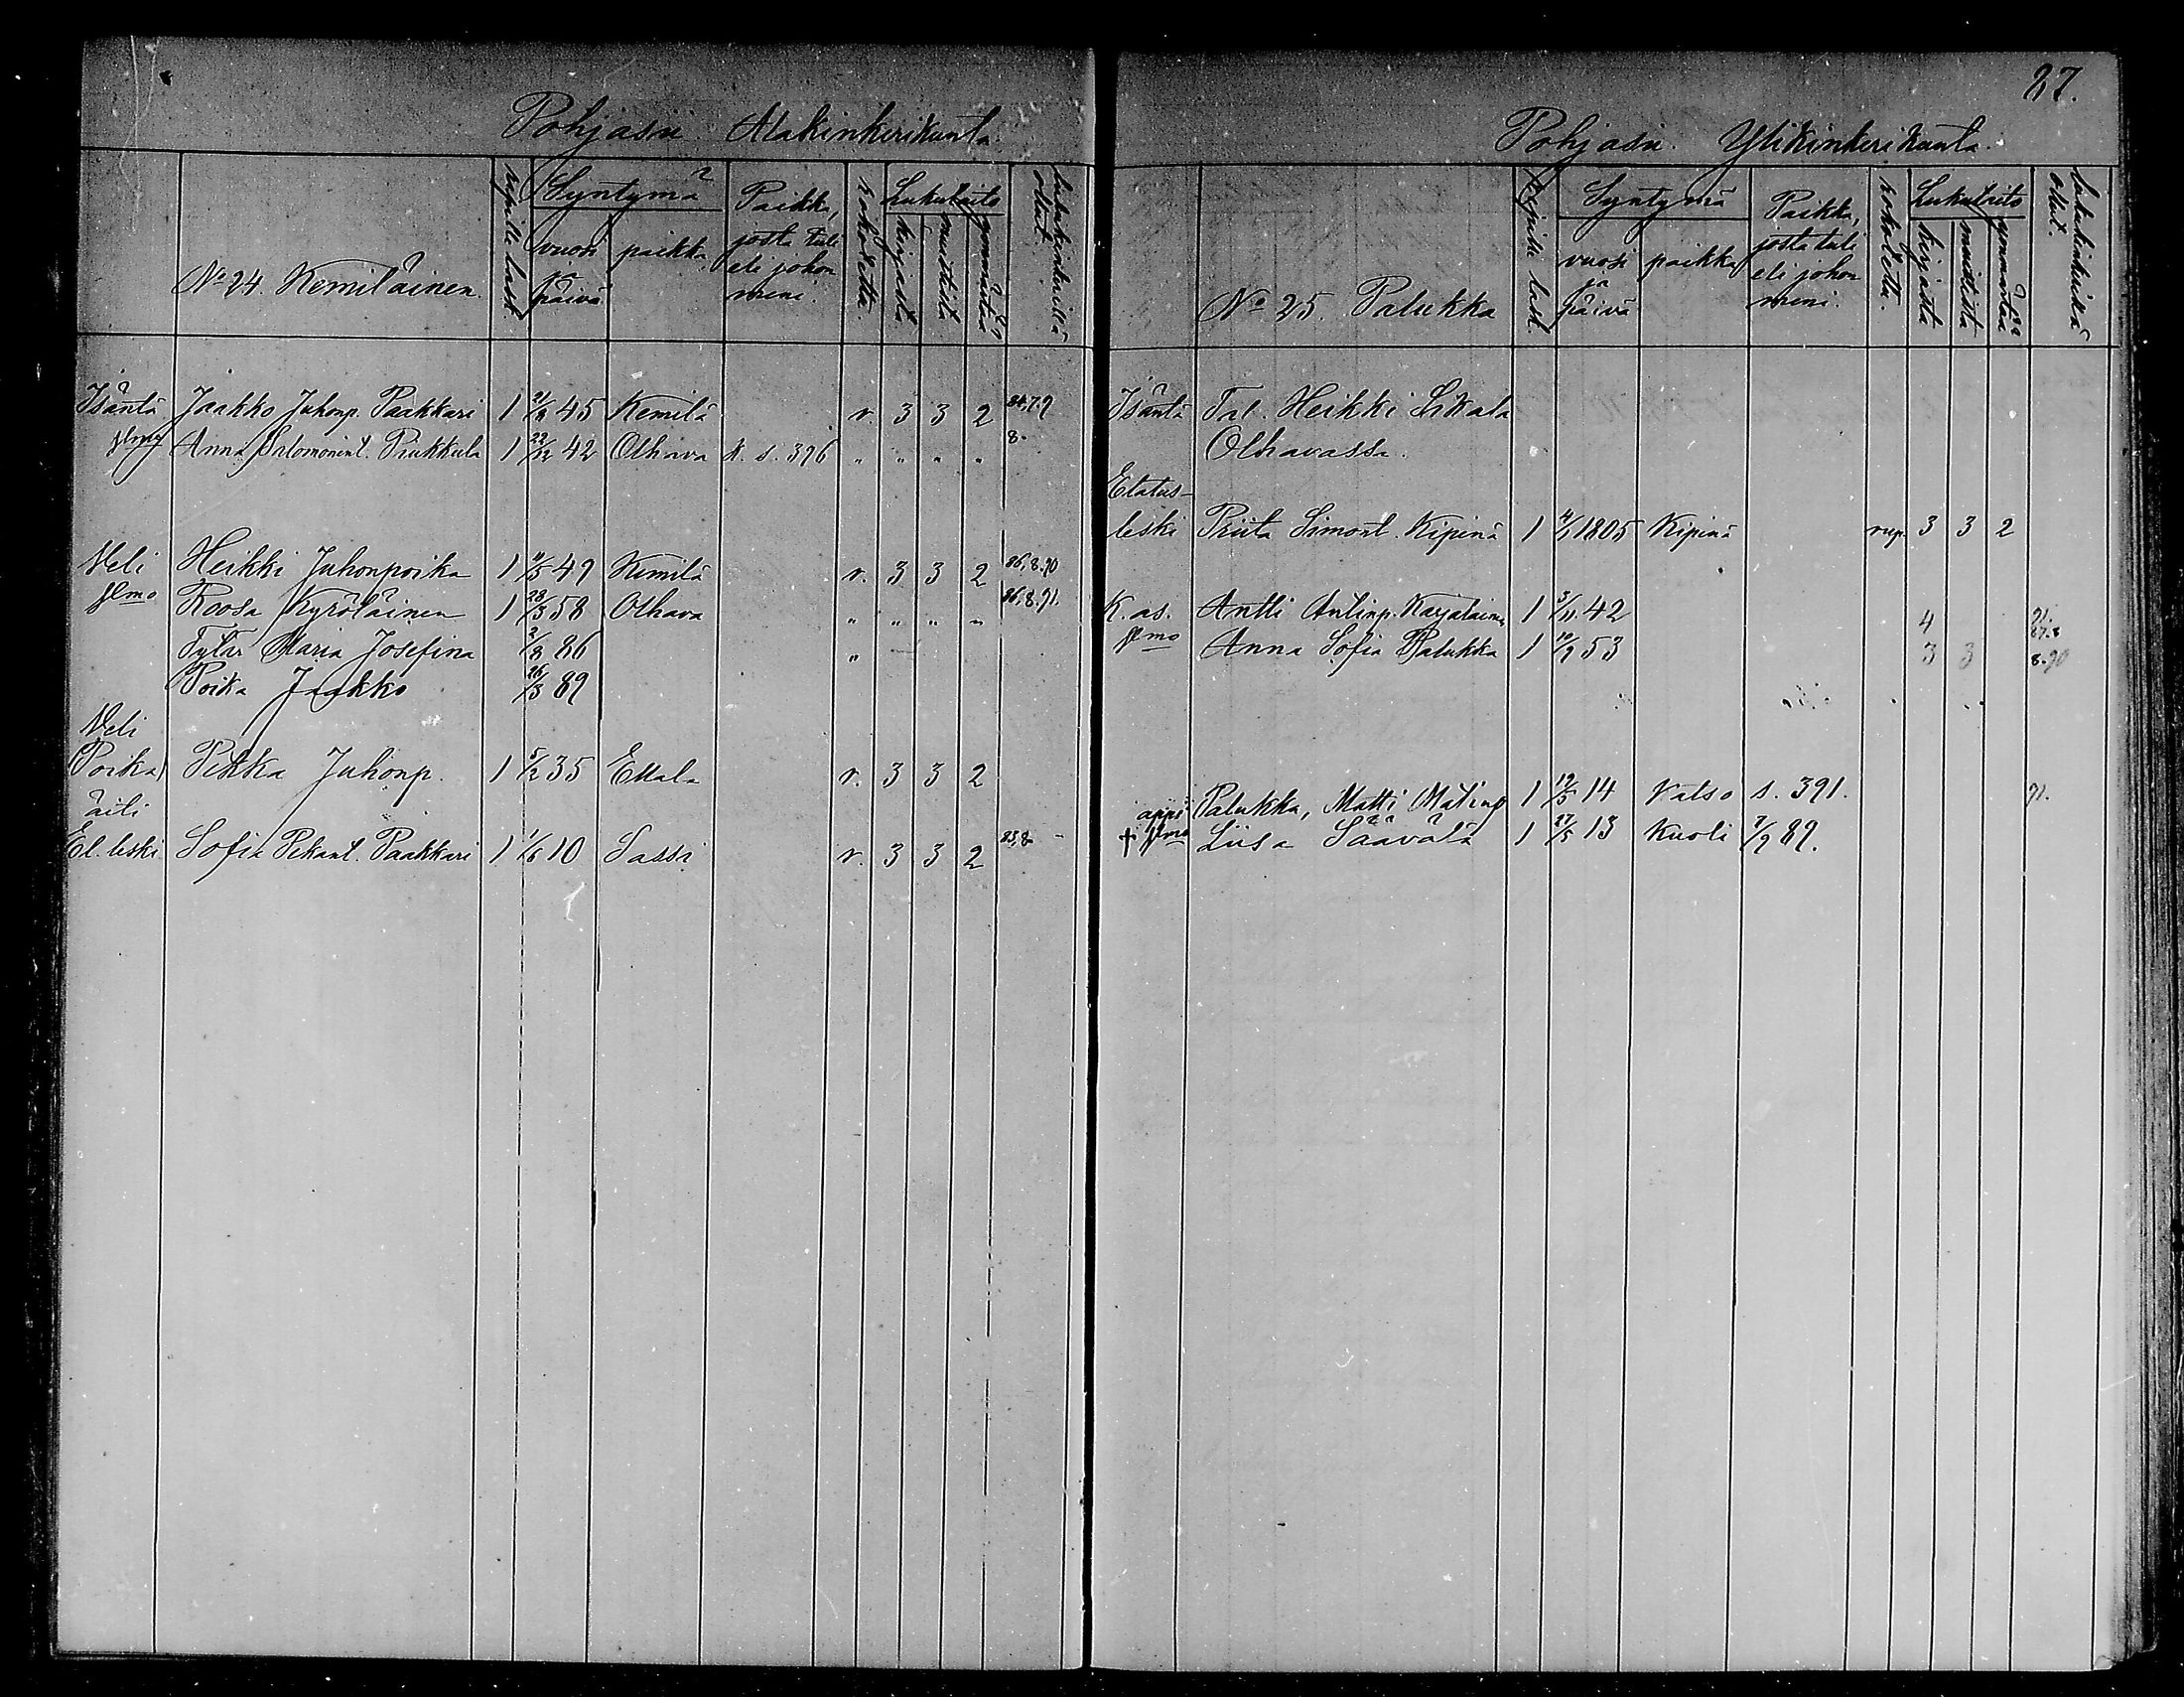 Pohjasu. Alakinkerikunta.
No 24. Kemiläinen.
ripille lask.
Syntymä
vuosi ja päivä
paikka
Paikka, josta tuli eli johon meni.
rokotettu.
Lukutaito
kirjasta
muistista
ymmärtää
lukukinkerillä ollut.
Isäntä Jaakko Juhonp. Paakkari 1 45 Kemilä r. 3 3 2
Anna Salomonint. Piukkula 1 22/12 42 Olhava k. s. 396 " " " "
Veli Heikki Juhonpoika 1 49 Kemilä r. 3 3 2 86,8.90
Roosa Kyröläinen 1 28/3 58 Olhava " " " " 86,8.91.
Tytär Maria Josefina 2/8 86 "
Poika Jaakko 26/3 89
Veli
Poika Pekka Juhonp. 1 5/2 35 r. 3 3 2
äiti
El. leski Sofia Pekant. Paakkari 1 1/6 10 Sassi r. 3 3 2
87.
Pohjasu. Ylikinkerikunta.
No 25. Palukka
ripille lask.
Syntymä
vuosi ja päivä
paikka
Paikka, josta tuli eli johon meni.
rokotettu.
Lukutaito
kirjasta
muistista
ymmärtää
lukukinkerillä ollut.
Isäntä Tal. Heikki
Olhavassa.
Elatus-
leski Priita Simont. Kipinä 1 4/1 1805 Kipinä rup. 3 3 2
K. as. Antti Antinp. Karjalainen 1 3/11 42 4 91.
Anna Sofia Palukka 1 53 3 3 8.90
appi Palukka, Matti Matinp 1 19/5 14 Katso s. 391. 91.
† Liisa Säävälä 1 27/5 13 Kuoli 7/9 89.